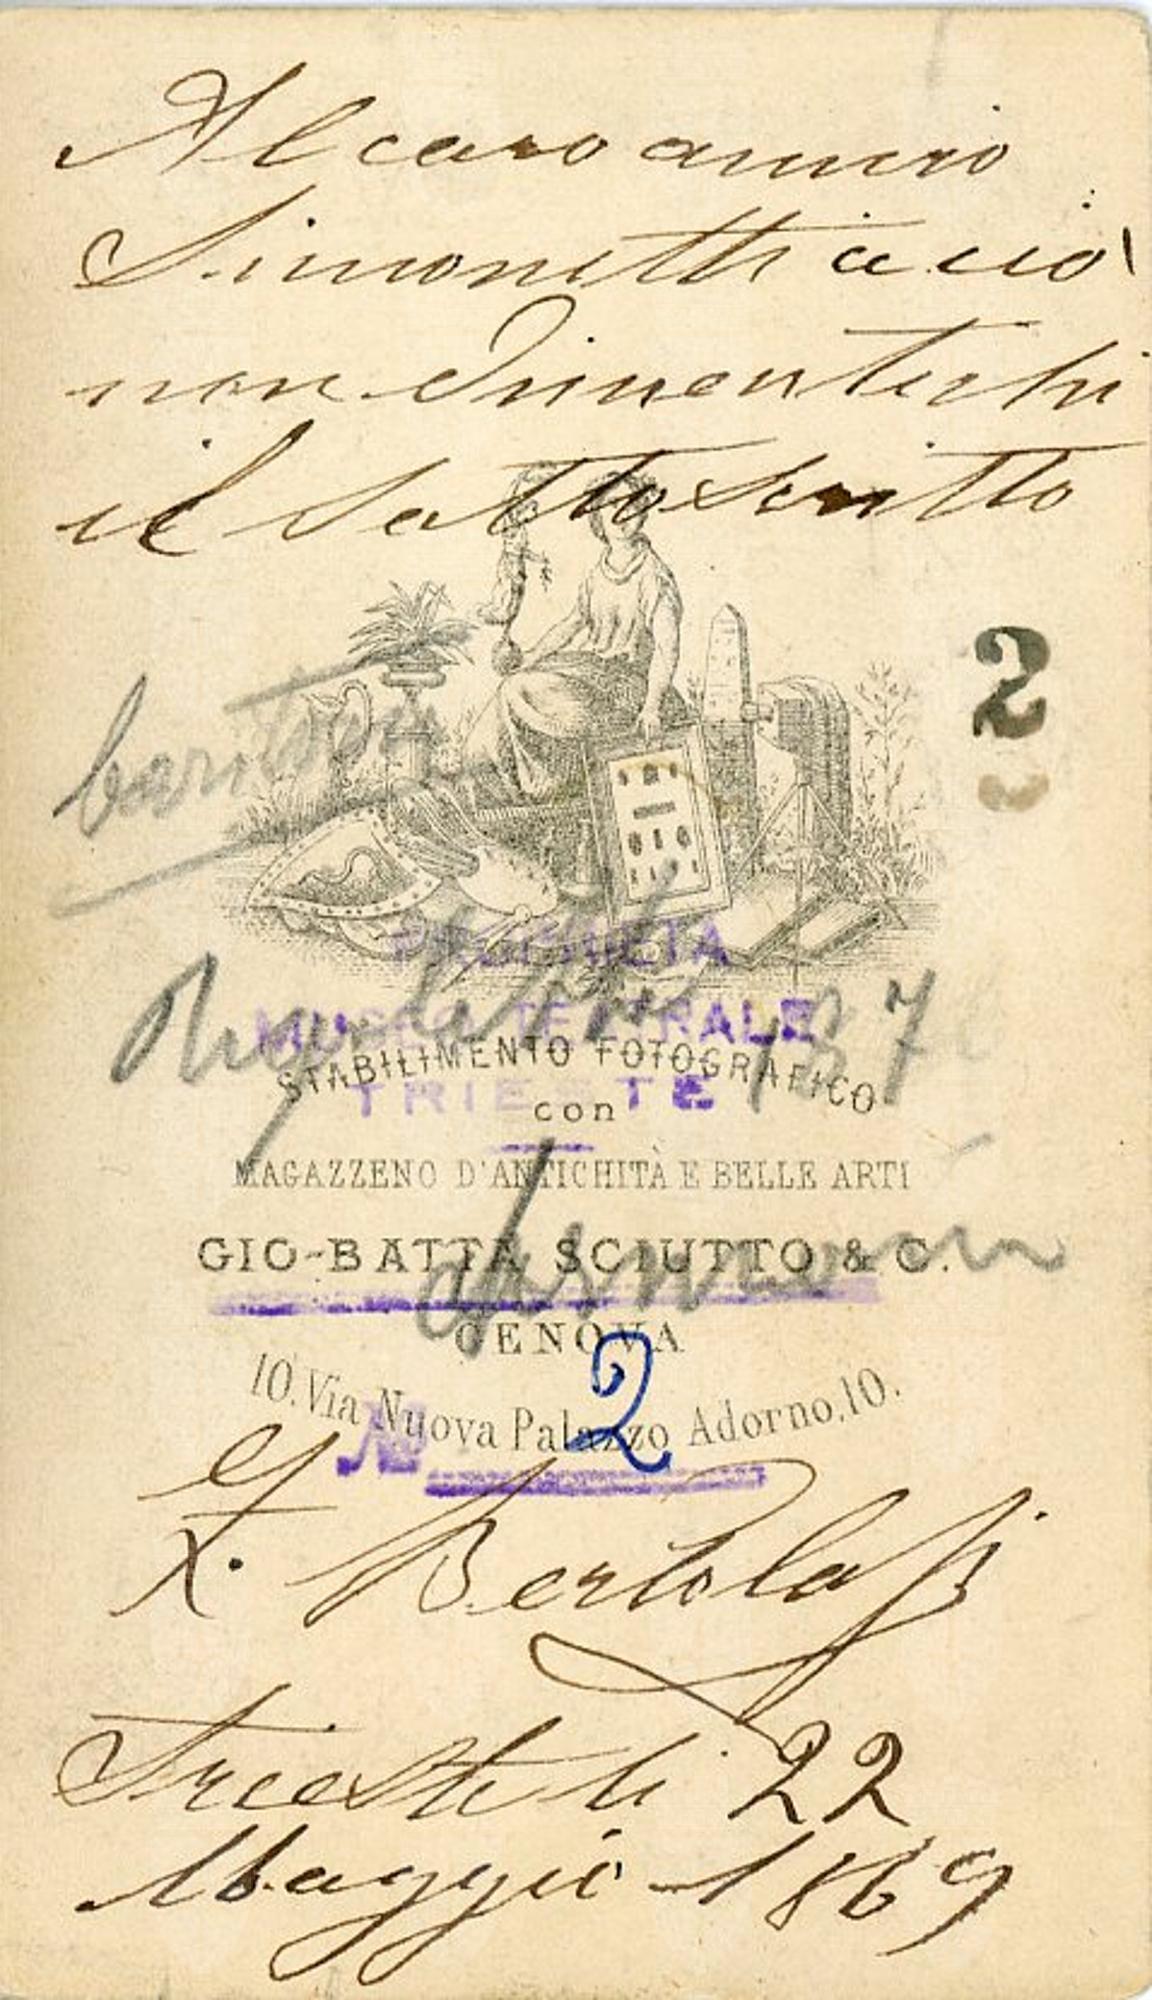 Al caro amico
Simonetti a ciò
non dimentichi
il sottoscritto
2
PROPRIETÀ
MUSEO TEATRALE
TRIESTE
STABILIMENTO FOTOGRAFICO
con
MAGAZZENO D'ANTICHITÀ E BELLE ARTI
GIO-BATTA SCIUTTO & C.
GENOVA
10. Via Nuova Palazzo Adorno, 10.
No 2
Bertolasi
Trieste li 22
Maggio 1869